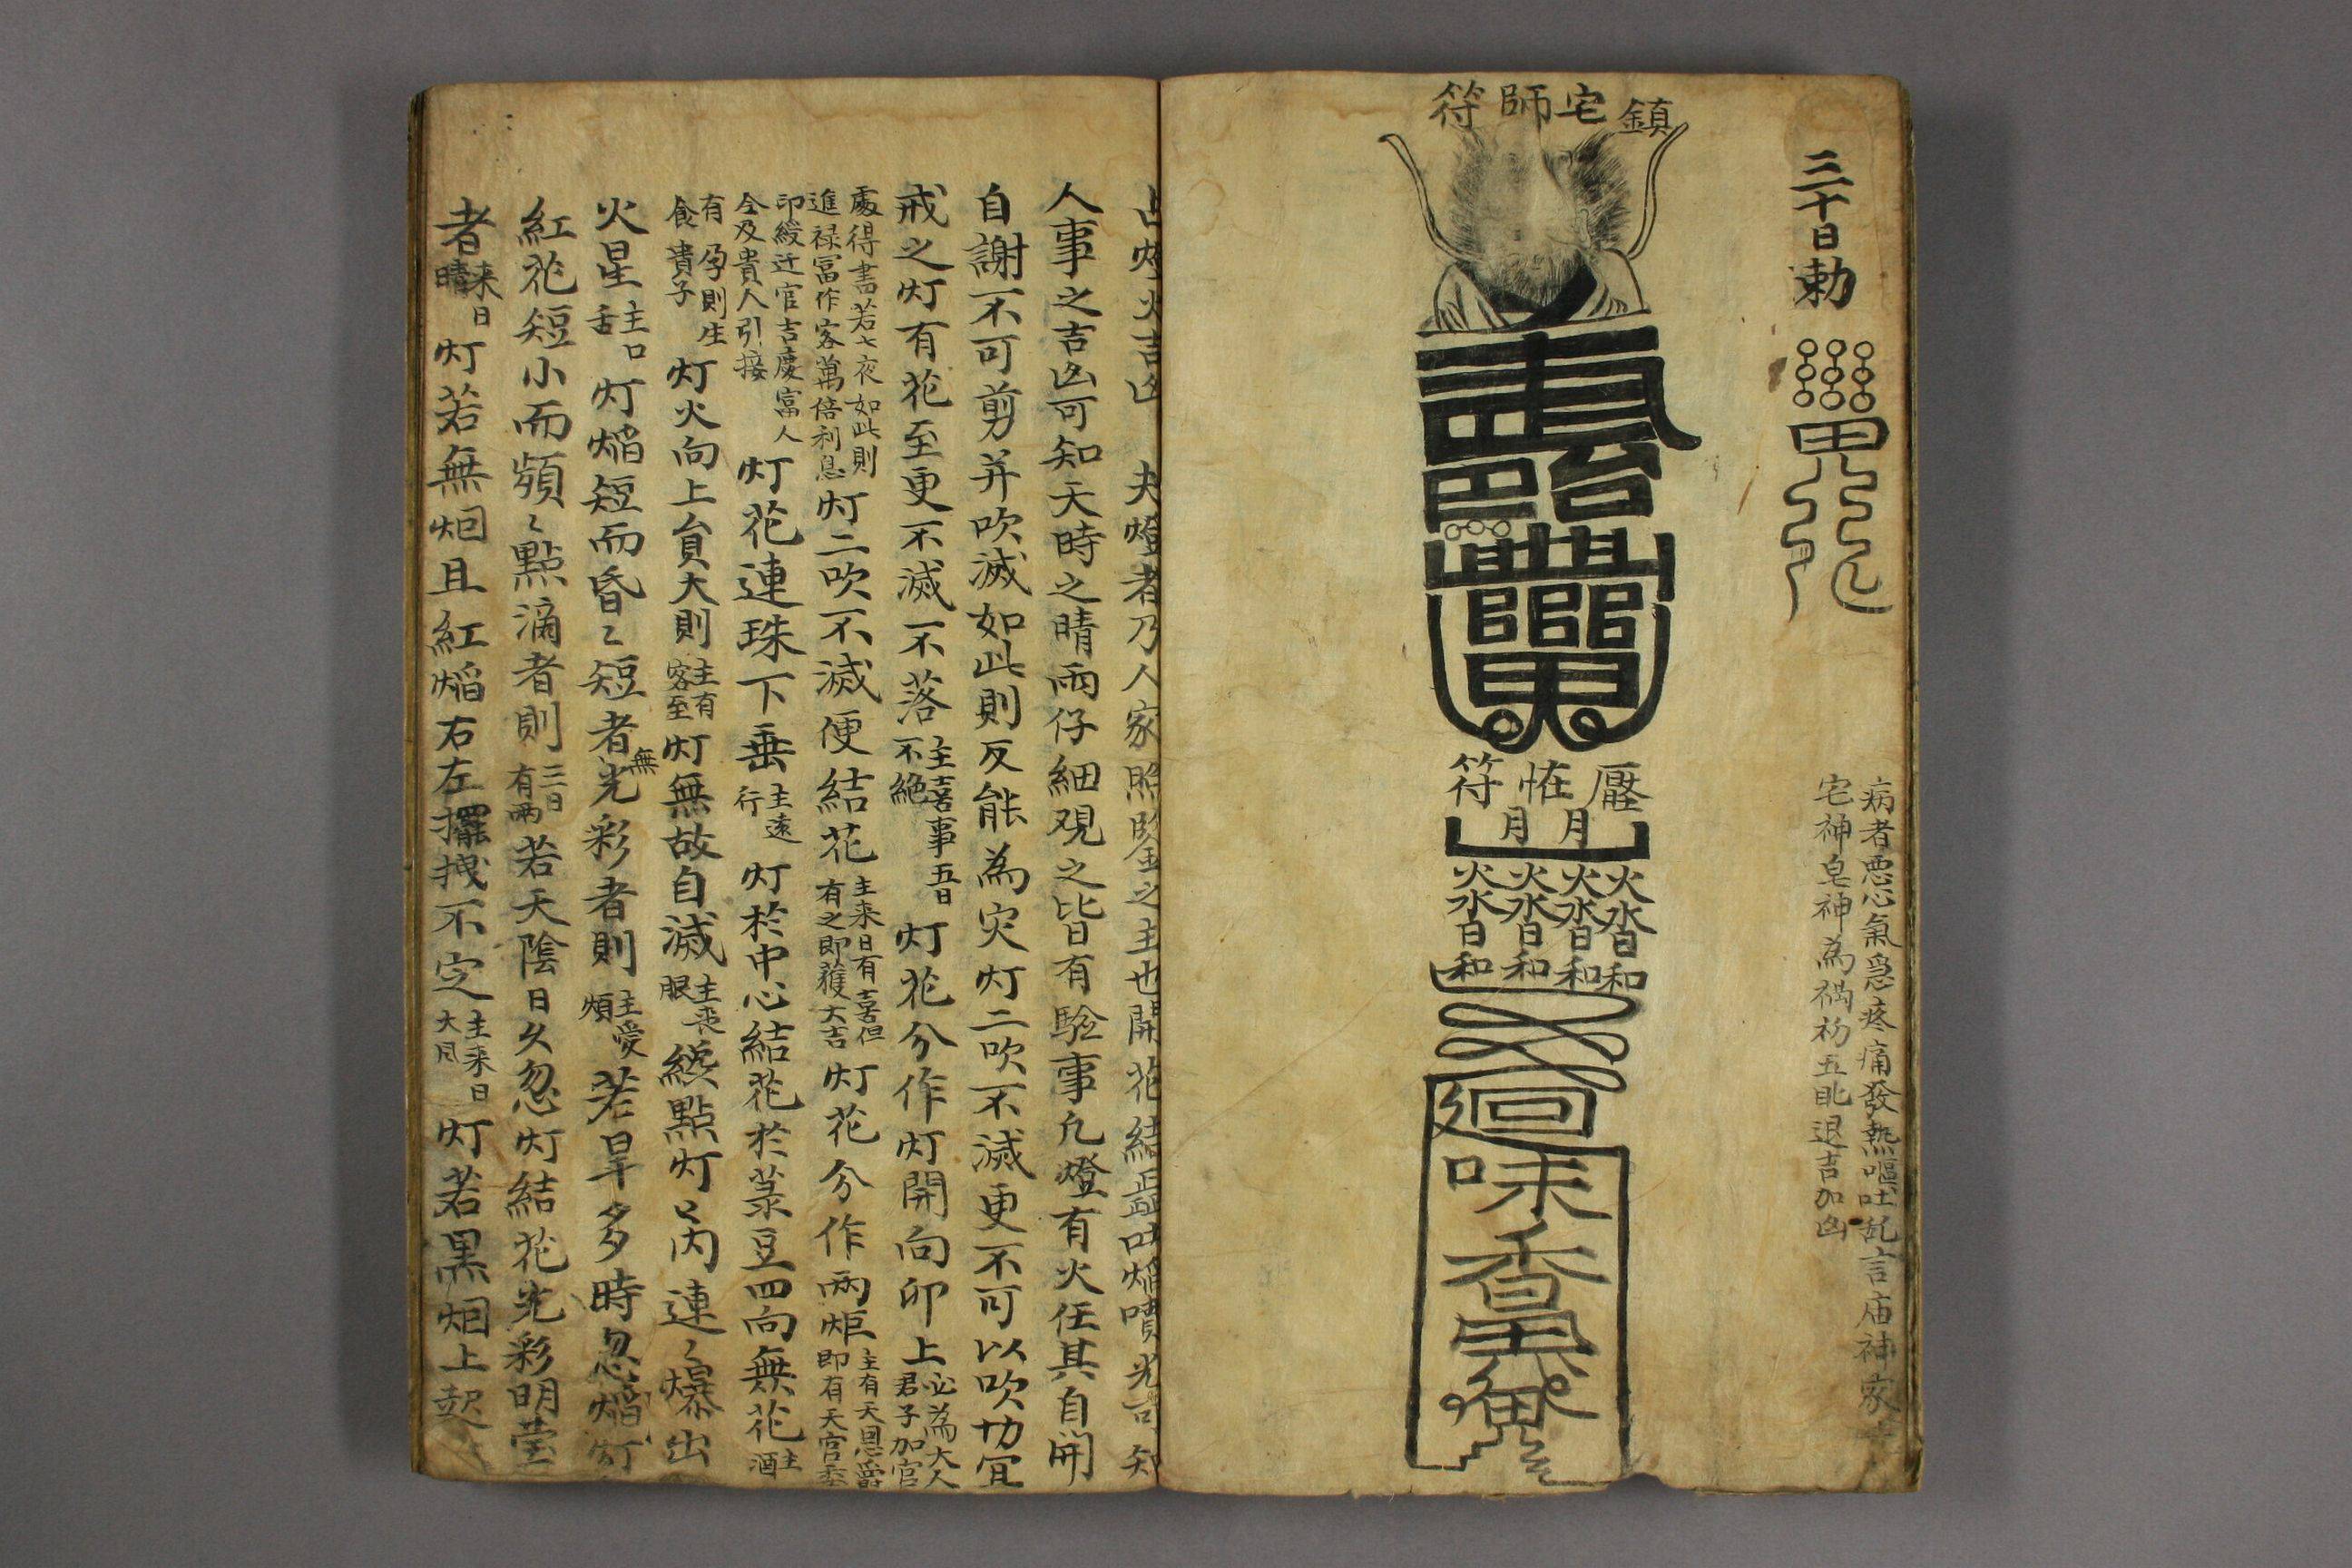 三十日勅
病者悪心氣急疼痛發熱嘔吐乱言庙神家
宅神皂神為禍礽五眂退吉加凶
鎮宅師符
台
壓恠符
月月
火火火火
水水水水
日日日日
和和和和
廻
味
香
占灯火吉凶 夫燈者乃人家照臨之主也開花結蕋吐焰噴光吉 知
人事之吉凶可知天時之晴雨仔細观之皆有驗事凢燈有火任其自開
自謝不可剪并吹滅如此則反能為灾灯二吹不滅更不可以吹切宜
戒之灯有花至更不滅不落主喜事五日不絶灯花分作灯開向卯上必為大人君子加官
處得書若七夜如此則進禄冨作客萬倍利息灯二吹不滅便結花主来日有喜但有之即獲大吉灯花分作兩炬主有天恩爵即有天官委
印綬迁官吉慶富人全及貴人引接灯花連珠下垂主遠行灯於中心結花於菉豆四向無花主酒
有孕則生食貴子灯火向上負大則主有客至灯無故自滅主丧服縂點灯〻芮連〻爆出
火星主口舌灯焰短而昏〻短者無光彩者則主憂煩若旱多時忽焰灯
紅花短小而頻〻點滴者則三日有雨若天陰日久忽灯結花光彩明莹
者来日晴灯若無烟且紅焰右左擺拽不定主来日大风灯若黒烟上起